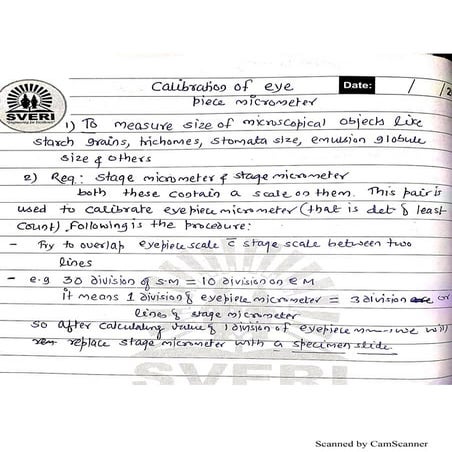 Calibration of eye
piece micrometer
Date: / /2
SVERI
1) To measure size of microscopical objects like
starch grains, trichomes, stomata size, emulsion globule
size & others
2) Req: stage micrometer & stage micrometer
both these contain a scale on them. This pair is
used to calibrate eyepiece micrometer (that is det of least
count). Following is the procedure:
- Try to overlap eyepiece scale c̄ stage scale between two
lines
- e.g 30 division of S.M = 10 division on E M
it means 1 division of eyepiece micrometer = 3 division or
lines of stage micrometer
so after calculating value of 1 division of eyepiece we will
replace stage micrometer with a specimen slide.
SVERI
Scanned by CamScanner